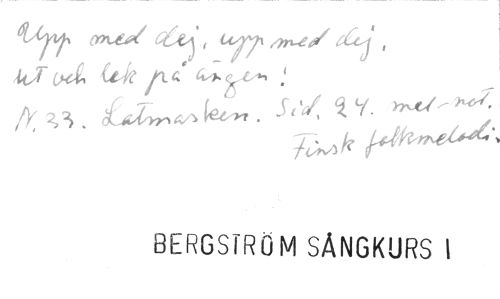 Upp med dej, upp med dej,
ut och lek på ängen!
N. 33. Latmasken. Sid. 24. mel-not.
Finsk folkmelodi.
BERGSTRÖM SÅNGKURS I